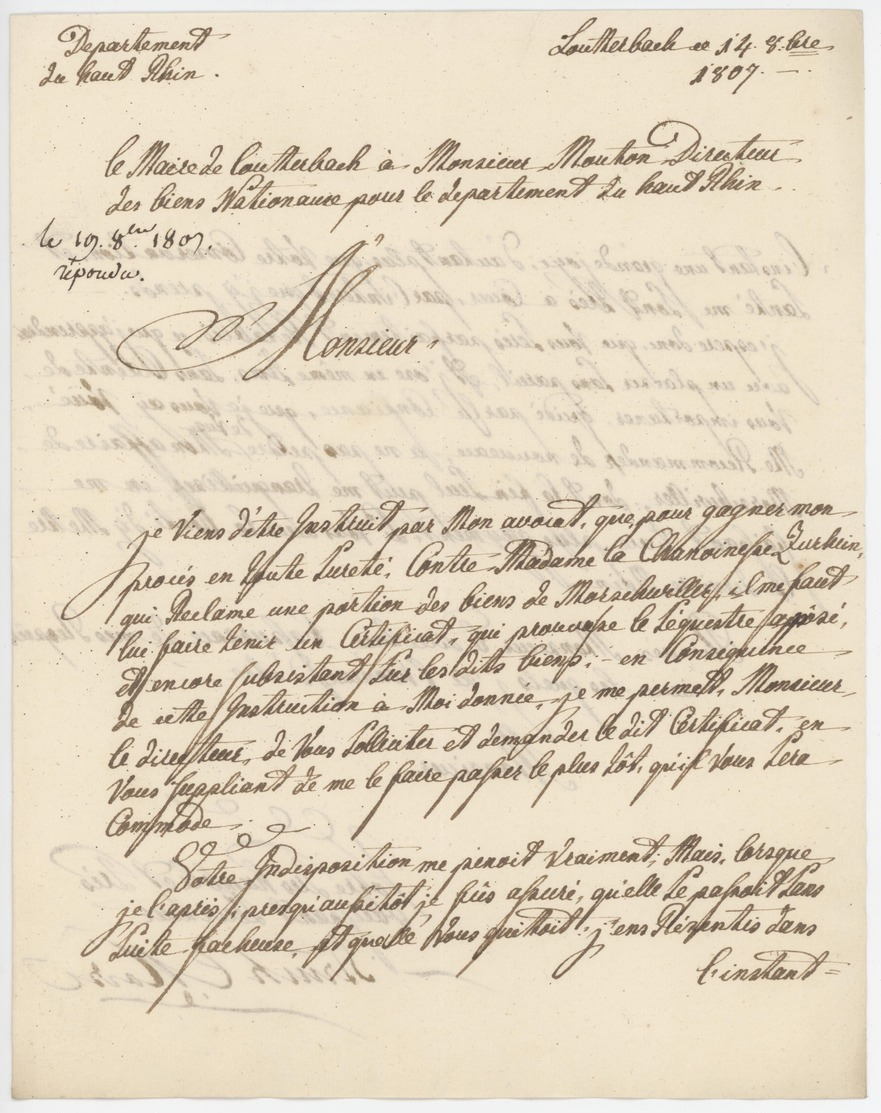 Departement
du haut Rhin.
Loutterbach ce 14 8.bre
1807.
le Maire de Loutterbach à Monsieur Mouton Directeur
des biens Nationaux pour le departement du haut Rhin.
le 19. 8bre 1807.
répondu.
Monsieur
je Viens d'être Instruit par Mon avocat, que, pour gagner mon
procés en toute Sureté, Contre Madame la Chanoinesse Zurhein,
qui Réclame une portion des biens de Morschwiller, il me faut
lui faire tenir un Certificat, qui prouvasse le Séquestre apposé,
et encore subsistant Sur les dits biens; en Conséquence
de cette Instruction à Moi donnée, je me permet, Monsieur
le directeur, de Vous Solliciter et demander le dit Certificat, en
Vous Suppliant de me le faire passer le plus tôt, qu'il Vous Sera
Commode.
Votre Indisposition me penoit vraiment; Mais, lorsque
je l'apris, presqu'aussitôt je fûs assuré, qu'elle Se passoit Sans
Suite facheuse, et qu'elle Vous quittoit; j'en Réssentis dans
l'instant